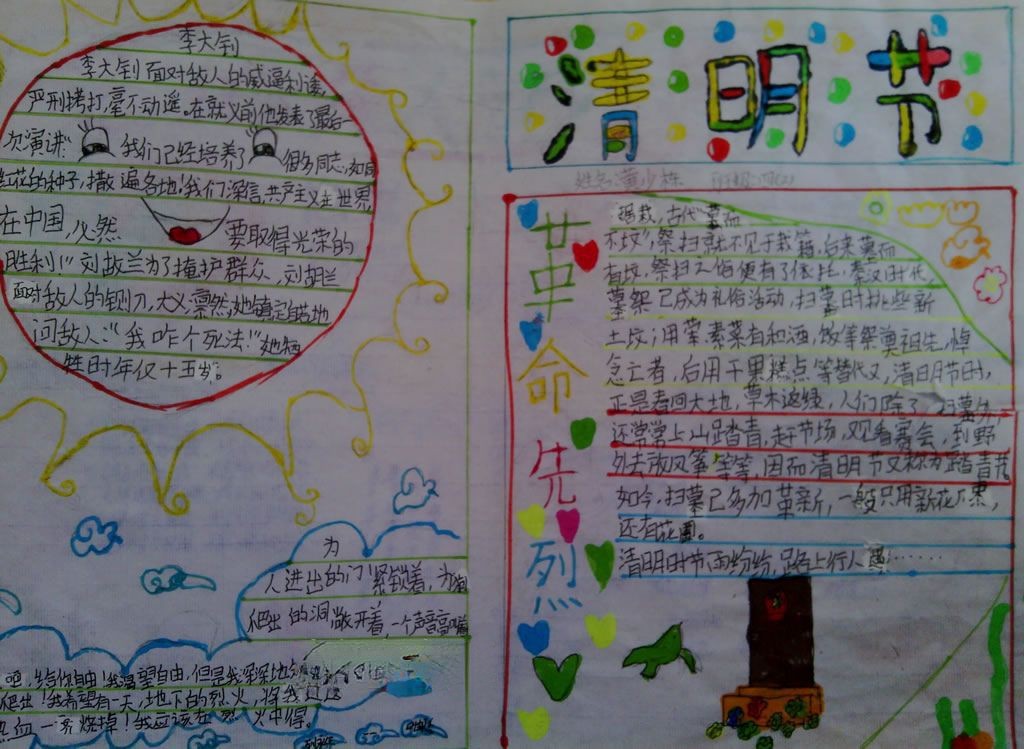 李大钊
李大钊面对敌人的威逼利诱,
严刑拷打,毫不动遥。在就义前他发表了最后一
次演讲: 我们已经培养了 很多同志,如同
红花的种子,撒遍各地!我们深信,共产主义在世界,
在中国,必然 要取得光荣的
胜利!"刘故兰为了掩护群众,刘胡兰
面对敌人的铡刀,大义凛然,她镇定自若地
问敌人:"我咋个死法!"她牺
牲时年仅十五岁。
为
人进出的门紧锁着,为狗
爬出的洞敞开着,一个声音高叫着
吧,给你自由!我渴望自由,但是我深深地
爬出!我希望有一天,地下的烈火,将我
热血一齐烧掉!我应该在烈火中得。
清明节
姓名:黄少栋
革命先烈
据载,古代"墓而
不坟",祭扫就不见于载籍,后来墓而
有坟,祭扫之俗便有了依托,秦汉时代,
墓祭已成为礼俗活动,扫墓时挑些新
土坟;用荤素菜肴和酒,饭等祭奠祖先,悼
念亡者,后用干果糕点等替代又,清明节时,
正是春回大地,草木返绿,人们除了扫墓外,
还常常上山踏青,赶节场,观看赛会,到野
外去放风筝等等,因而清明节又称为踏青节
如今,扫墓已多加革新,一般只用新花水果,
还有花圈。
清明时节雨纷纷,路上行人……